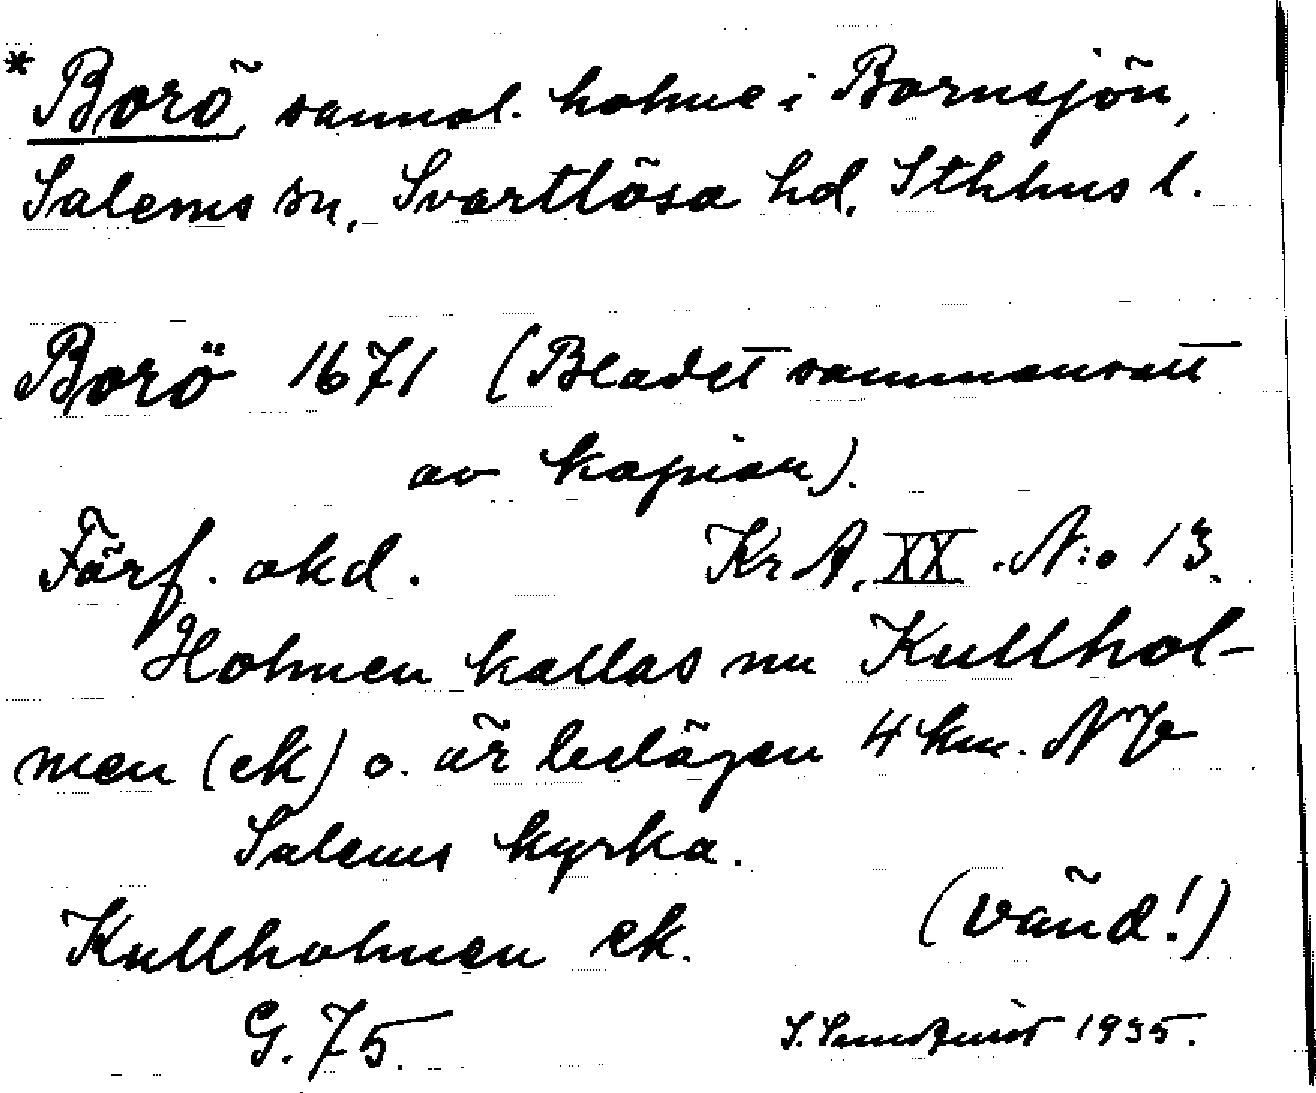 * Borö, sannol. holme i Bornsjön,
Salems sn, Svartlösa hd, Sthlms l.
Borö 1671 (Bladet sammansatt
av kopior).
Förf. okd. KrA. XX. N:o 13.
Holmen kallas nu Kullhol-
men (ek) o. är belägen 4 km. NV
Salems kyrka.
Kullholmen ek. (vänd!)
G. 75. S. Sundquist 1935.